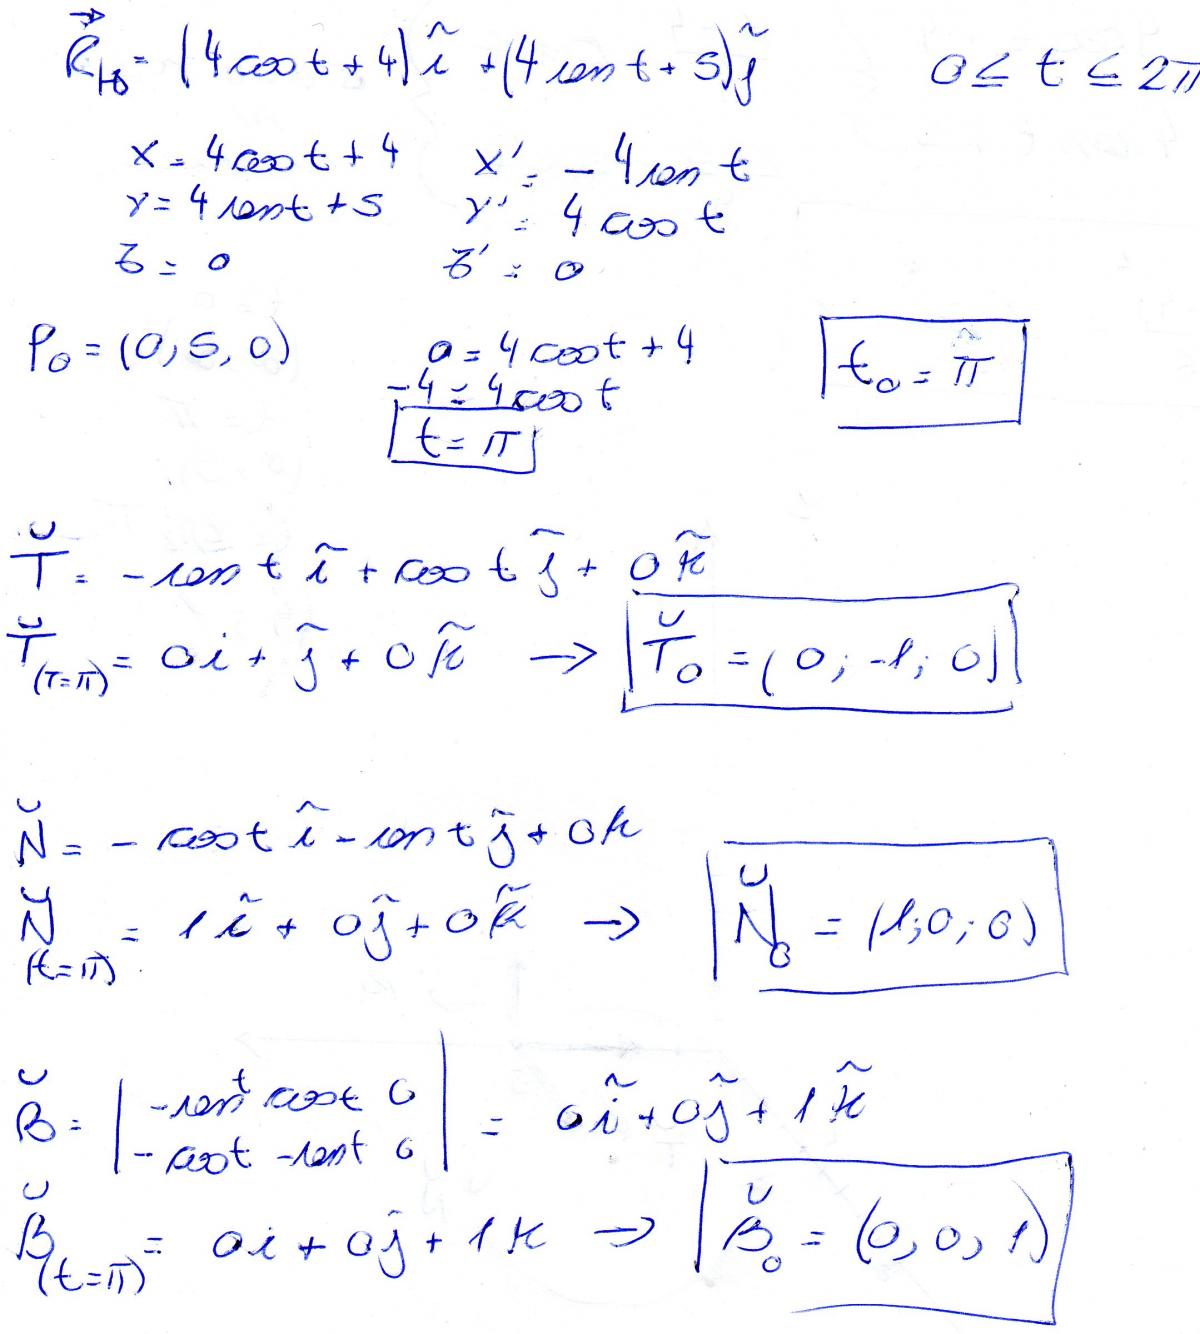 R⃗(t) = (4 cos t + 4) ĩ + (4 sen t + 5) j̃ 0 ≤ t ≤ 2π
x = 4 cos t + 4 x' = - 4 sen t
y = 4 sen t + 5 y' = 4 cos t
z = 0 z' = 0
P₀ = (0, 5, 0) 0 = 4 cos t + 4 t₀ = π
-4 = 4 cos t
t = π
T̆ = - sen t ĩ + cos t j̃ + 0 k̃
T̆ (T=π) = 0i + j̃ + 0 k̃ → T̆₀ = (0; -1; 0)
N̆ = - cos t ĩ - sen t j̃ + 0k
N̆ (t=π) = 1 ĩ + 0j̃ + 0k̃ → N̆₀ = (1; 0; 0)
B̆ = | -sen t cos t 0 | = 0ĩ + 0j̃ + 1k̃
| - cos t - sen t 0 |
B̆ (t=π) = 0i + 0j + 1k → B̆₀ = (0, 0, 1)